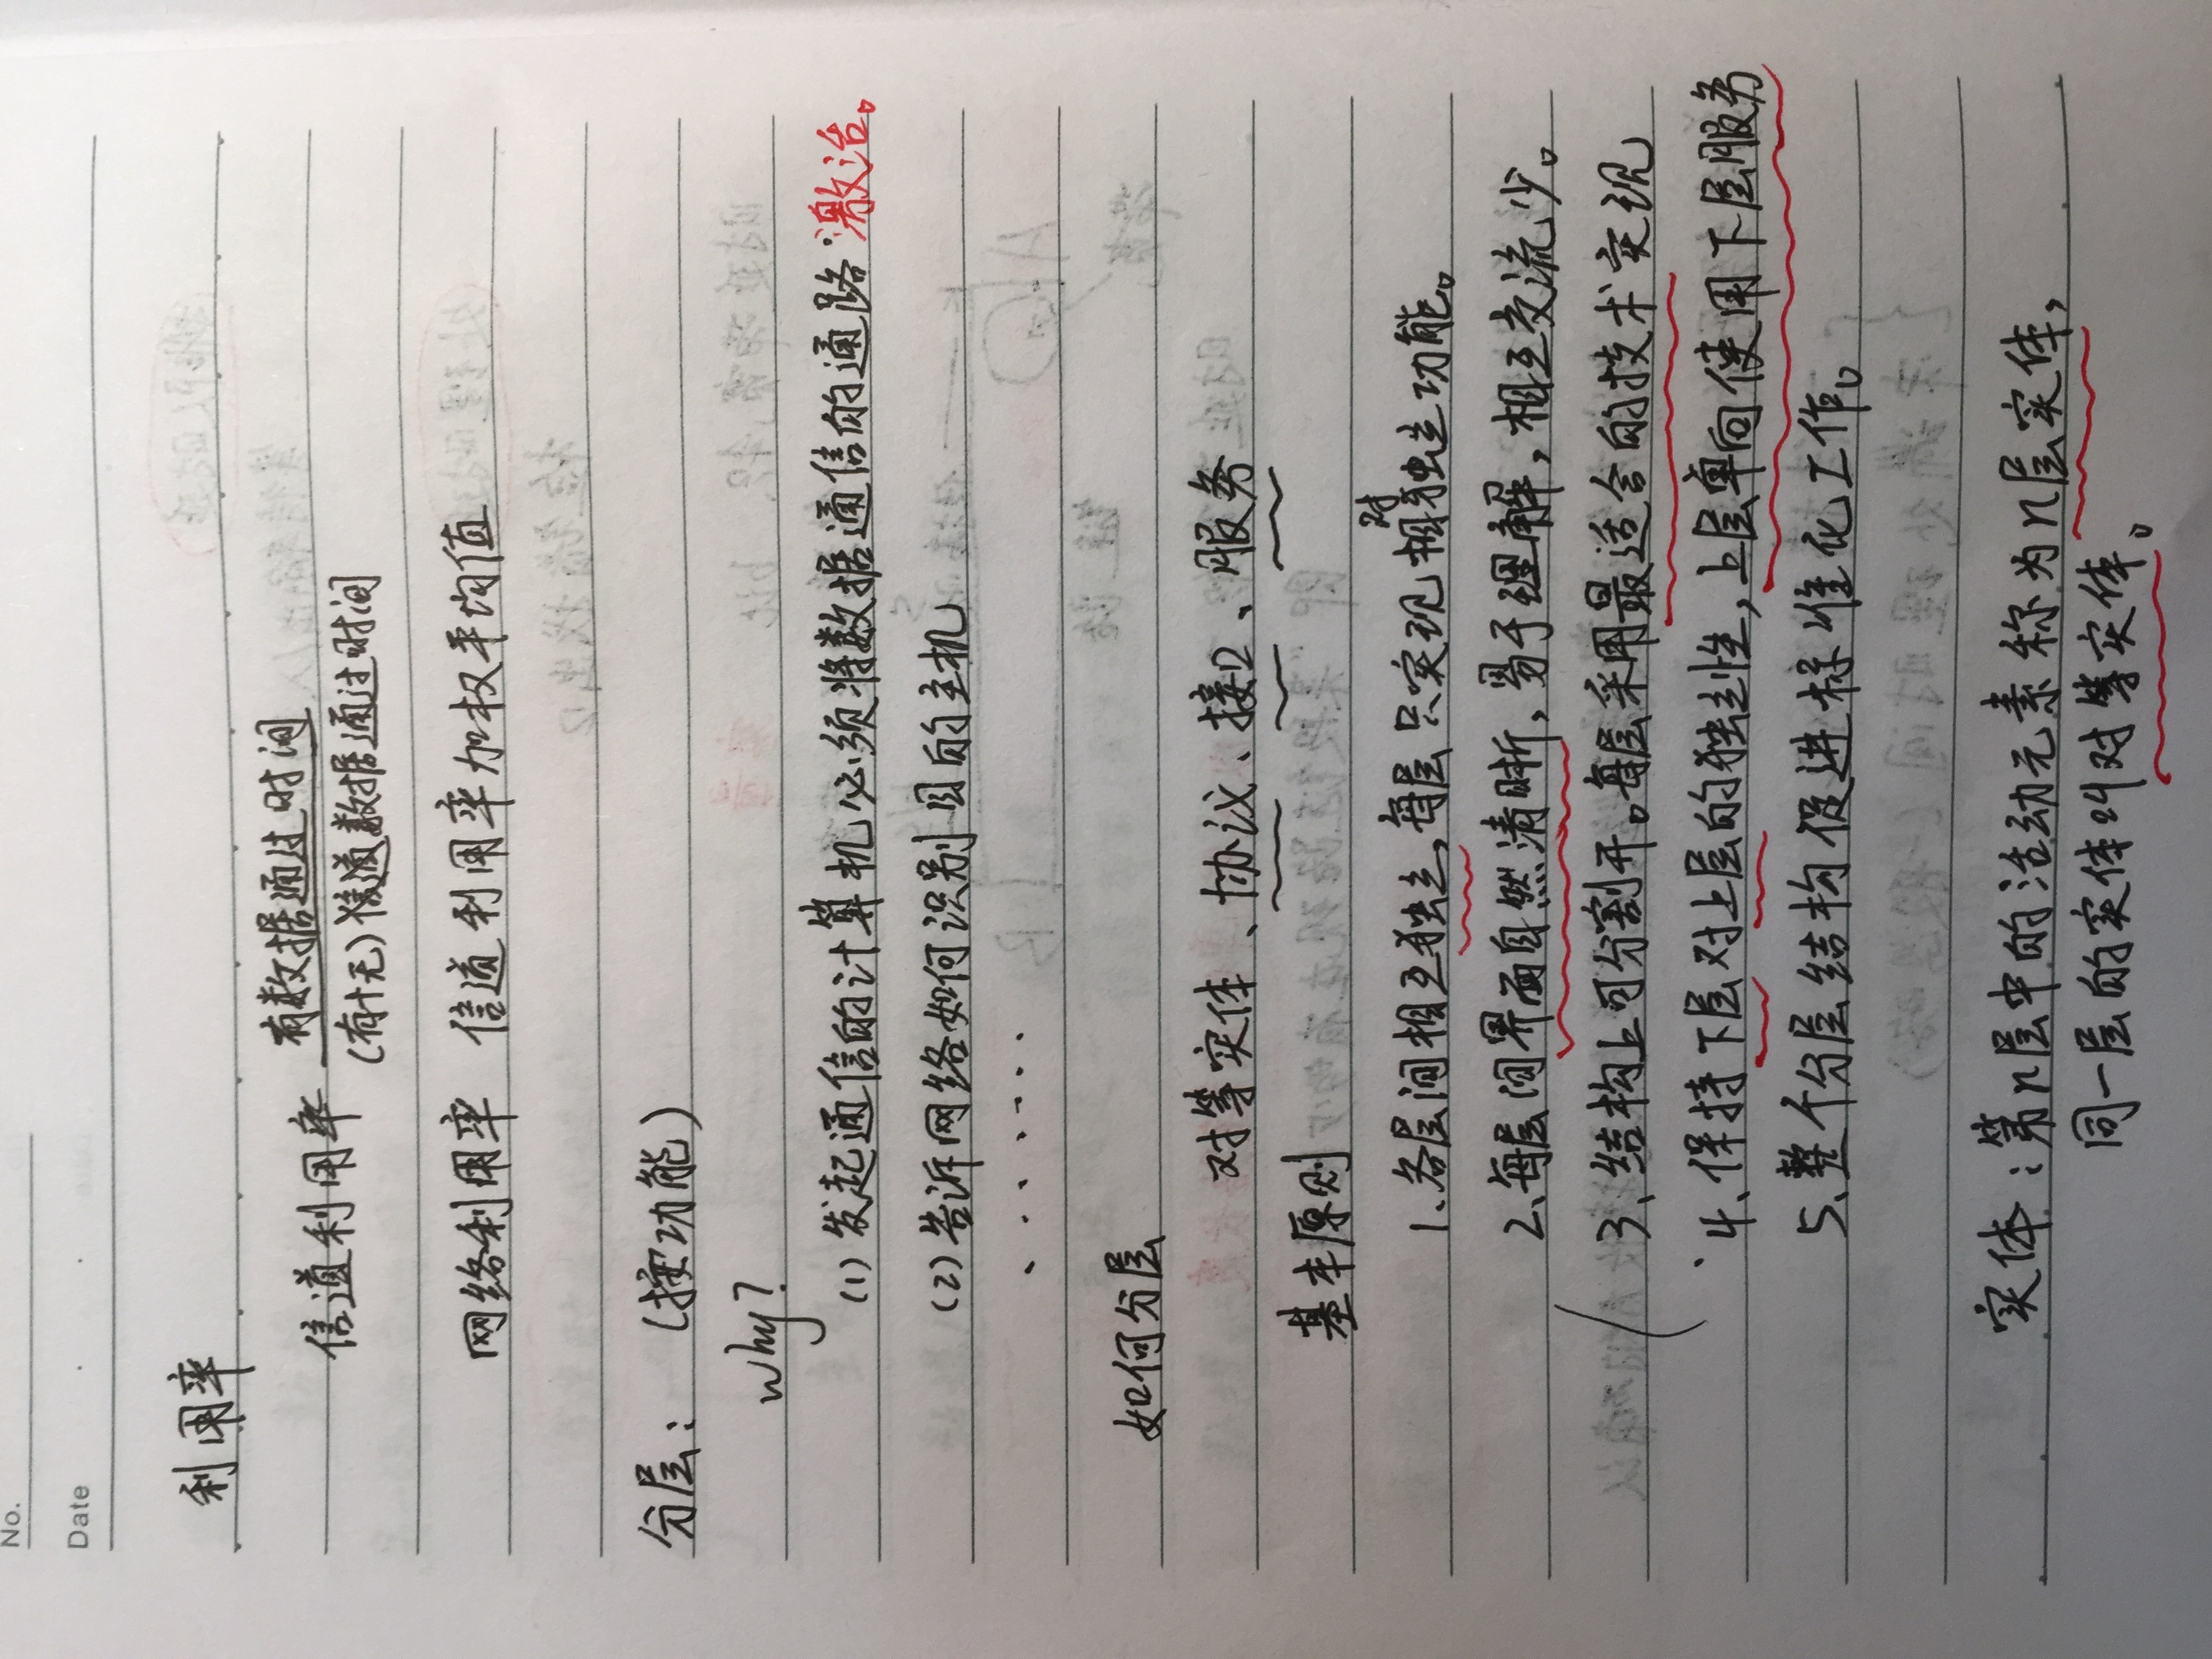 No.
Date
利用率
信道利用率 有数据通过时间
(有+无)数据通过时间
网络利用率 信道利用率加权平均值
分层: (按功能)
why?
(1)发起通信的计算机必须将数据通信的通路激活。
(2)告诉网络如何识别目的主机
、......
如何分层
对等实体、协议、接口、服务
基本原则
1、各层间相互独立,每层只实现相对独立功能。
2、每层间界面自然清晰,易于理解,相互交流少。
3、结构上可分割开。每层采用最适合的技术实现
4、保持下层对上层的独立性,上层单向使用下层服务
5、整个分层结构促进标准化工作。
实体:第n层中的活动元素称为n层实体,
同一层的实体叫对等实体。